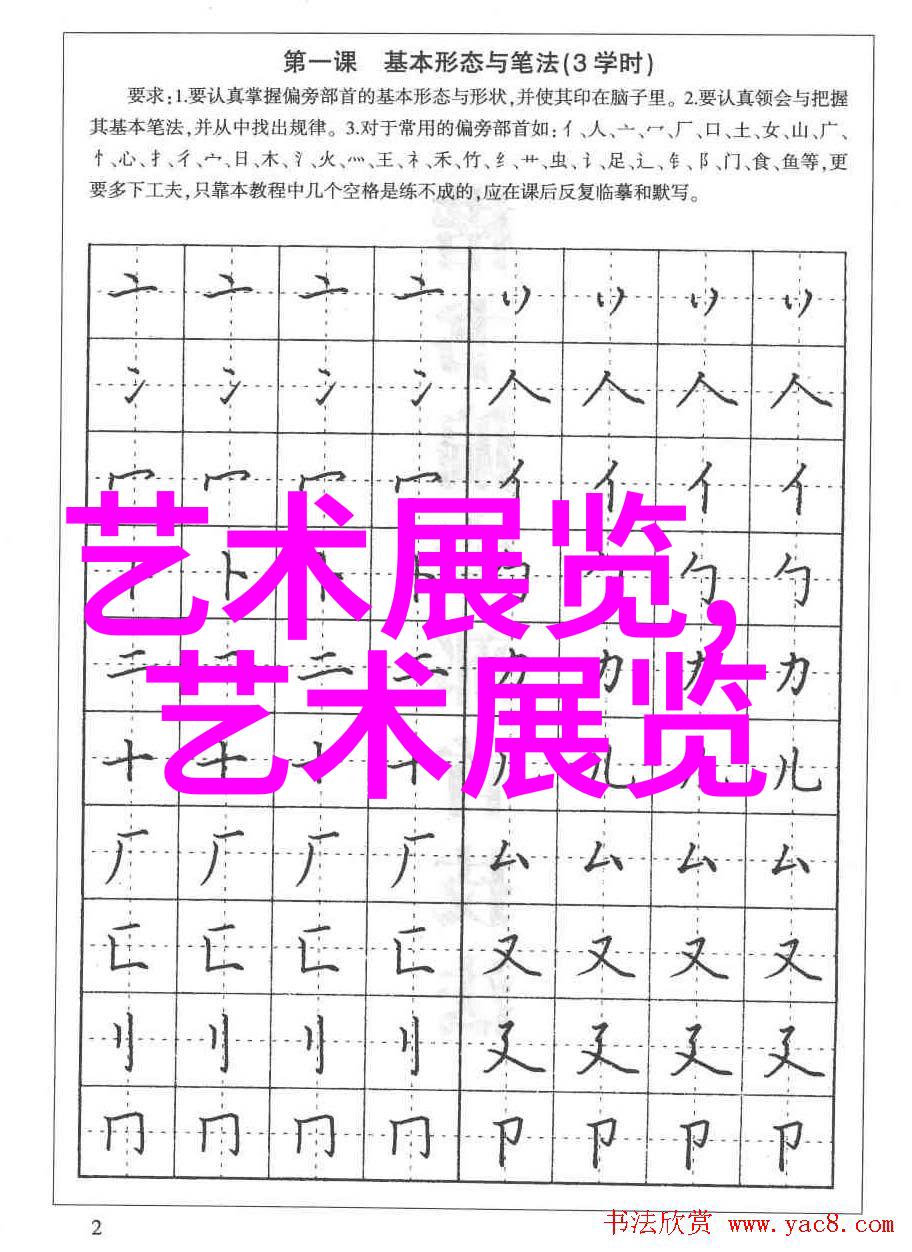 第一课 基本形态与笔法(3学时)
要求:1.要认真掌握偏旁部首的基本形态与形状,并使其印在脑子里。2.要认真领会与把握
其基本笔法,并从中找出规律。3.对于常用的偏旁部首如:亻、人、亠、冖、厂、口、土、女、山、广、
忄、心、扌、彳、宀、日、木、氵、火、灬、王、礻、禾、竹、纟、艹、虫、讠、足、辶、钅、阝、门、食、鱼等,更
要多下工夫,只靠本教程中几个空格是练不成的,应在课后反复临摹和默写。
亠 亠 亠 亠 丷 丷 丷 丷
冫 冫 冫 冫 人 人 人 人
冖 冖 冖 冖 亻 亻 亻 亻
卜 卜 卜 勹 勹
艺术展览,
二 二 二 力 力 力 力
艺术展览
十 十 十 十 儿 儿 儿 儿
厂 厂 厂 厂 厶 厶 厶 厶
匚 匚 匚 匚 又 又 又 又
刂 刂 刂 刂 廴 廴 廴 廴
冂 冂 冂 冂 卩 卩 卩 卩
2
书法欣赏 www.yac8.com